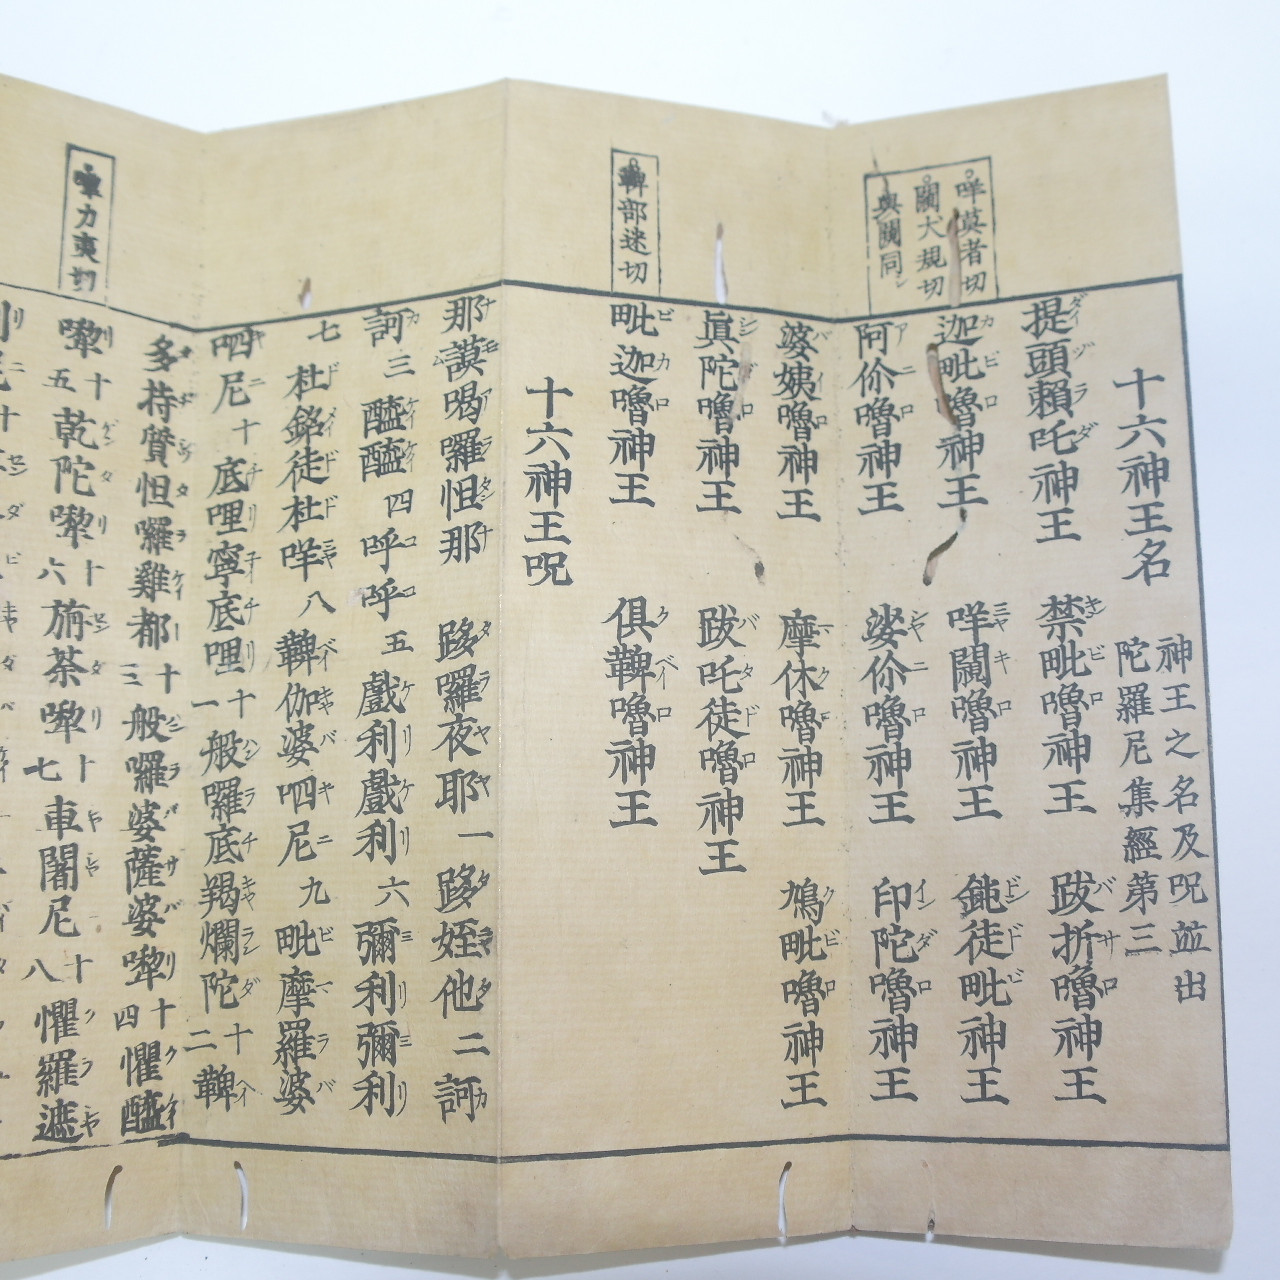 十六神王名
神王之名及呪並出
陀羅尼集經第三
提頭賴吒神王 禁毗嚕神王 跋折嚕神王
迦毗嚕神王 咩闌嚕神王 鈍徒毗神王
阿儞嚕神王 娑儞嚕神王 印陀嚕神王
婆姨嚕神王 摩休嚕神王 鳩毗嚕神王
眞陀嚕神王 跋吒徒嚕神王
毗迦嚕神王 俱鞞嚕神王
十六神王呪
那謨喝囉怛那 跢囉夜耶一 跢姪他二 訶
訶三 醯醯四 呼呼五 戲利戲利六 彌利彌利
七 杜銘徒杜咩八 鞞伽婆呬尼九 毗摩羅婆
呬尼十 底哩寧底哩十一 般羅底羯爛陀十二 鞞
多持贊怛囉雞都十三 般囉婆薩婆㗚十四 懼醯
㗚十五 乾陀㗚十六 旃荼㗚十七 車闍尼十八 懼羅遮
咩莫者切
闌犬規切
與闚同
鞞部迷切
㗚力夷切